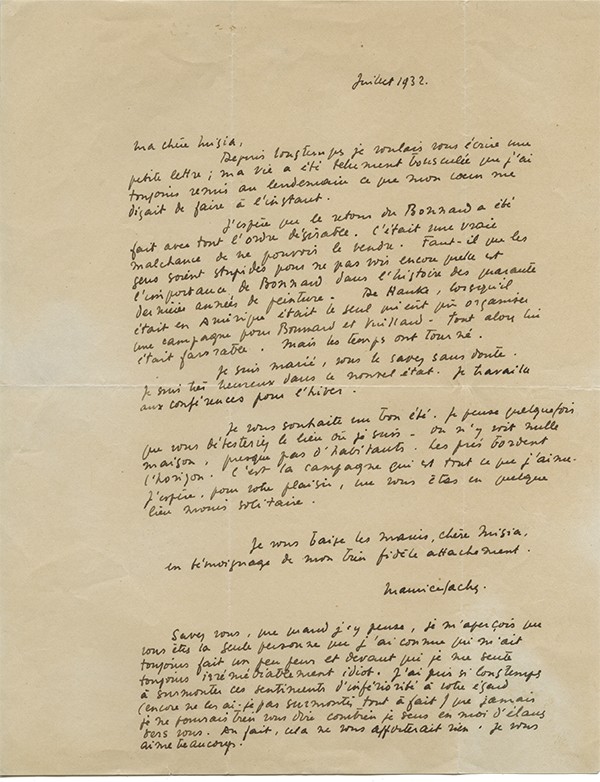 Juillet 1932.
Ma chère Misia,
Depuis longtemps je voulais vous écrire une
petite lettre ; ma vie a été tellement bousculée que j'ai
toujours remis au lendemain ce que mon cœur me
disait de faire à l'instant.
J'espère que le retour du Bonnard a été
fait avec tout l'ordre désirable. C'était une vraie
malchance de ne pouvoir le vendre. Faut-il que les
gens soient stupides pour ne pas voir encore quelle est
l'importance de Bonnard dans l'histoire des quarante
dernières années de peinture. De Hauke, lorsqu'il
était en Amérique était le seul qui eût pu organiser
une campagne pour Bonnard et Vuillard - tout alors lui
était favorable. Mais les temps ont tourné.
Je suis marié, vous le savez sans doute.
Je suis très heureux dans ce nouvel état. Je travaille
aux conférences pour l'hiver.
Je vous souhaite un bon été. Je pense quelquefois
que vous détesteriez le lieu où je suis - on n'y voit nulle
maison, presque pas d'habitants. Les prés bordent
l'horizon. C'est la campagne qui est tout ce que j'aime.
J'espère, pour votre plaisir, que vous êtes en quelque
lieu moins solitaire.
Je vous baise les mains, chère Misia,
en témoignage de mon très fidèle attachement.
Maurice Sachs.
Savez vous, que quand j'y pense, je m'aperçois que
vous êtes la seule personne que j'ai connue qui m'ait
toujours fait un peu peur et devant qui je me sente
toujours irrémédiablement idiot. J'ai mis si longtemps
à surmonter ces sentiments d'infériorité à votre égard
(encore ne les ai-je pas surmontés tout à fait) que jamais
je ne pourrais bien vous dire combien je sens en moi d'élans
vers vous. En fait, cela ne vous apporterait rien. Je vous
aime beaucoup.